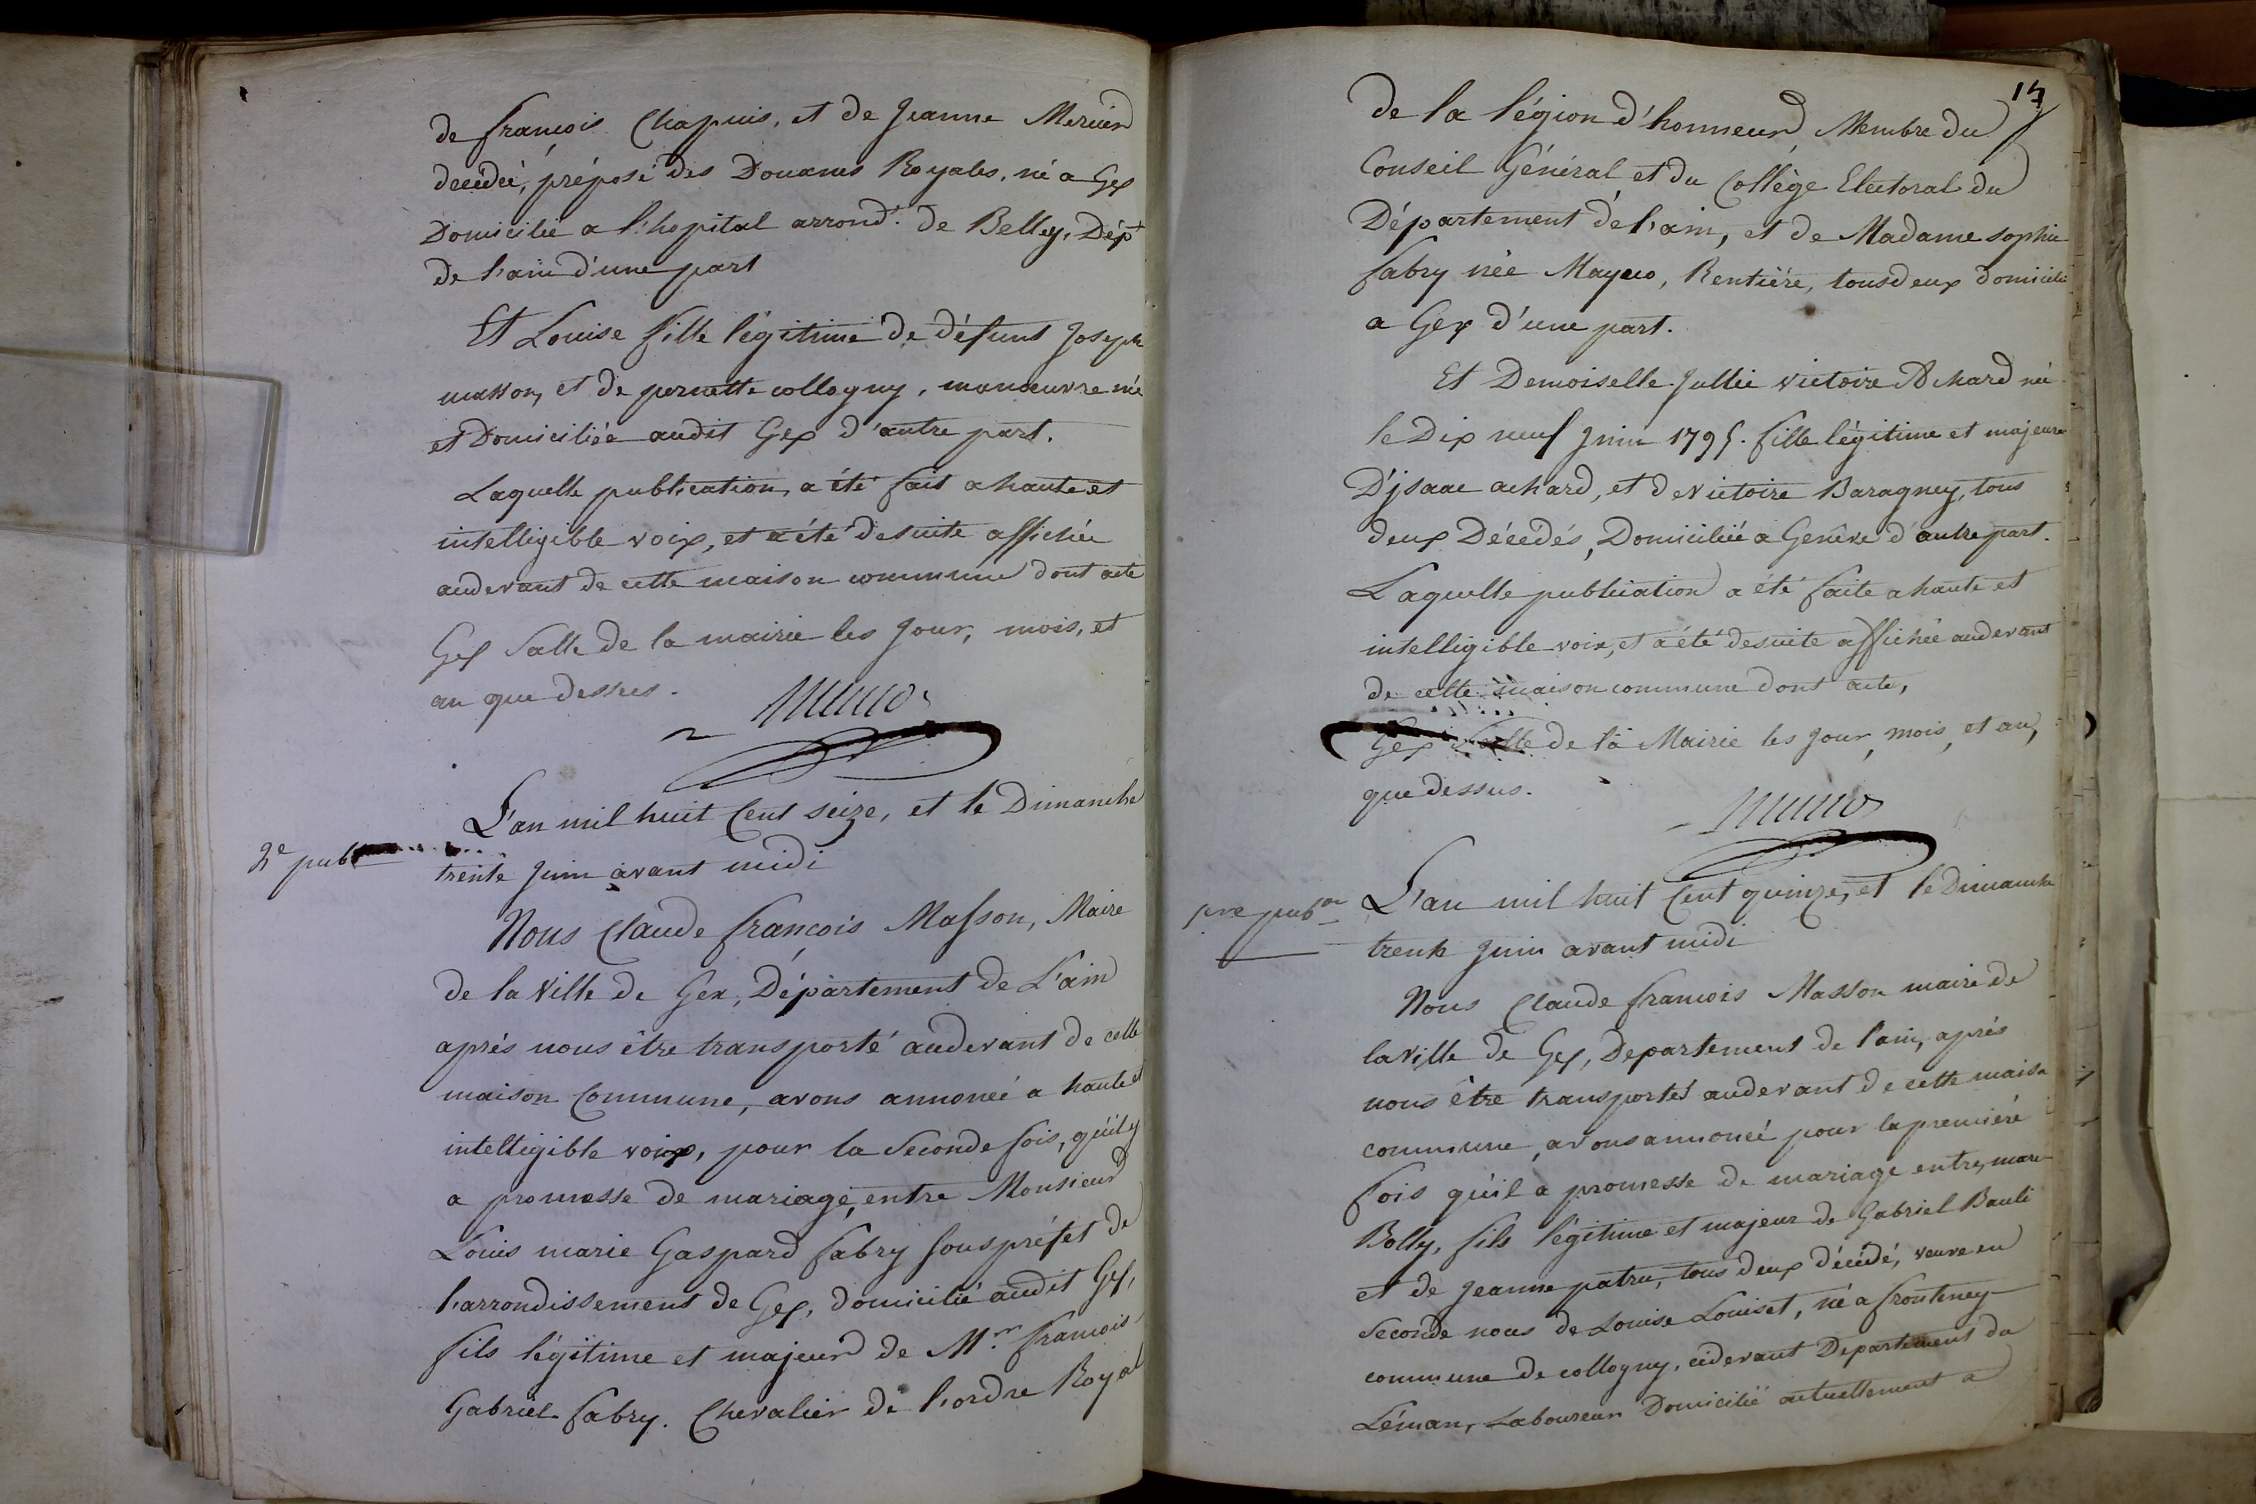 de françois Chapuis, et de Jeanne Mercier
decédée, préposé des Douanes Royales, né a Gex
Domicilié a l'hopital arrondt. de Belley, Dépt
de l'ain d'une part
Et Louise fille légitime de défunt Joseph
masson, et de pernette collogny, manœuvre née
et Domiciliée audit Gex d'autre part.
Laquelle publication, a été fait a haute et
intelligible voix, et a été de suite affichée
audevant de cette maison commune dont acte
Gex Salle de la mairie les Jour, mois, et
an que dessus.
2e pub
L'an mil huit Cent seize, et le Dimanche
trente Juin avant midi
Nous Claude françois Masson, Maire
de la Ville de Gex, Département de L'ain
aprés nous être transporté audevant de cette
maison Commune, avons annoncé a haute et
intelligible voix, pour la Seconde fois, qu'il y
a promesse de mariage, entre Monsieur
Louis marie Gaspard fabry sous préfet de
l'arrondissement de Gex, domicilié audit Gex,
fils légitime et majeur de Mr. francois
Gabriel fabry. Chevalier de l'ordre Royal
17
de la légion d'honneur, Membre du
Conseil Général et du Collège Electoral du
Département de l'ain, et de Madame sophie
fabry née Rentière, tous deux domicilié
a Gex d'une part.
Et Demoiselle Jullie victoire Achard née
le Dix neuf Juin 1795. fille légitime et majeure
D'jsaac achard, et de victoire Baragney, tous
deux Décedés, Domiciliée a Genève d'autre part.
Laquelle publication a été faite a haute et
intelligible voix, et a été de suite affichée audevant
de cette maison commune dont acte,
Gex Salle de la Mairie les Jour, mois, et an,
que dessus.
pre pubon
L'an mil huit Cent quinze, et le Dimanche
trente Juin avant midi
Nous Claude francois Masson maire de
la Ville de Gex, Departement de l'ain, aprés
nous être transportés audevant de cette maison
commune, avons annoncé pour la premiére
fois qu'il a promesse de mariage entre, marc
Bolly, fils légitime et majeur de Gabriel
et de Jeanne patru, tous deux décédé, veuve en
Seconde nous de Louise Louiset, né a fronteney
commune de collogny, cidevant Departement du
Léman, Laboureur Domicilié actuellement a